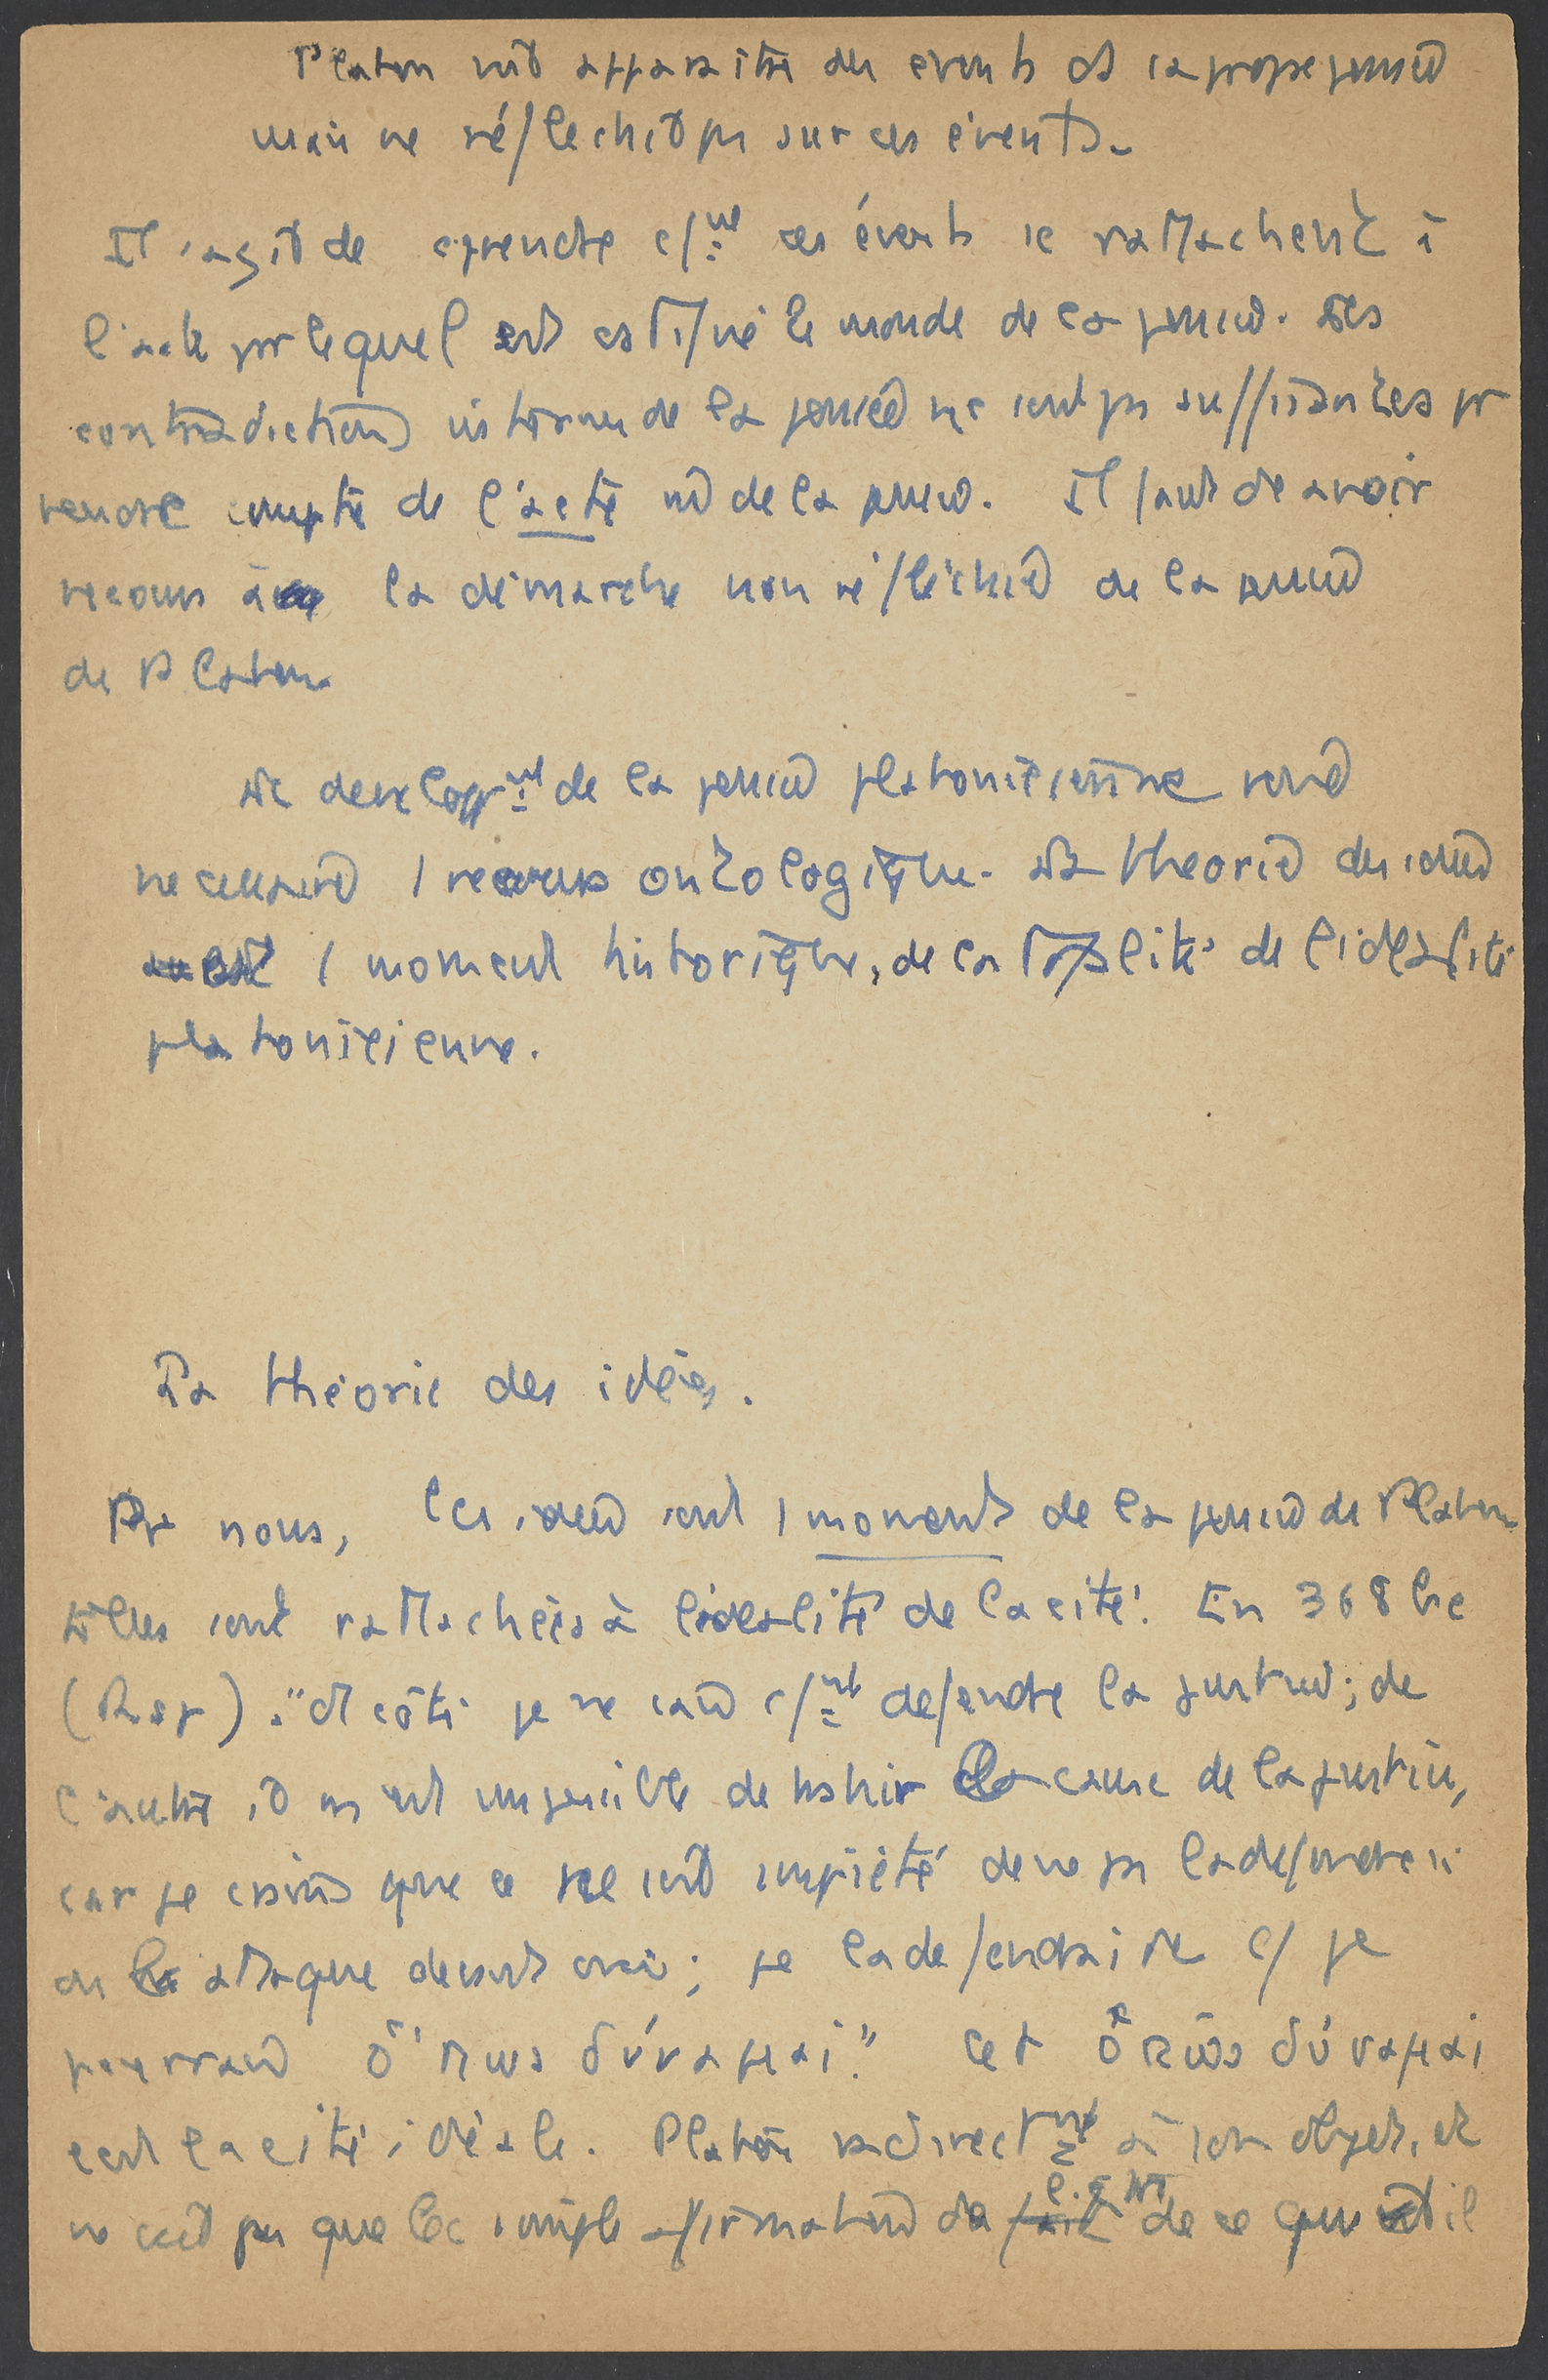 Platon voit apparaître des évents ds sa propre pensée
mais ne réfléchit pas sur ces évents.
Il s'agit de cprendre c/mt ces évents se rattachent à
l'acte par lequel est cstitué le monde de la pensée. Les
contradictions internes de la pensée ne sont pas suffisantes pr
rendre compte de l'acte de la pensée. Il faut dc avoir
recours à la démarche non réfléchie de la pensée
de Platon.
Le developpmt de la pensée platonicienne rend
necessaire 1 recours ontologique. La theorie des idées
est 1 moment historique, de la totalité de l'idéalité
platonicienne.
La théorie des idées.
Pr nous, les idées sont 1 moment de la pensée de Platon
Elles sont rattachées à l'idéalité de la cité. En 368 b c
(Rep) : "d'1 côté je ne sais c/mt défendre la justice ; de
l'autre il m'est impossible de trahir la cause de la justice,
car je crains que ce ne soit impiété de ne pas la défendre si
on l'attaque devant moi ; je la défendrai dc c/ je
pourrai ὅπως δύναμαι." Cet ὅπως δύναμαι
est la cité idéale. Platon va directmt à son objet, et
ne voit pas que la simple affirmation de ce que doit il